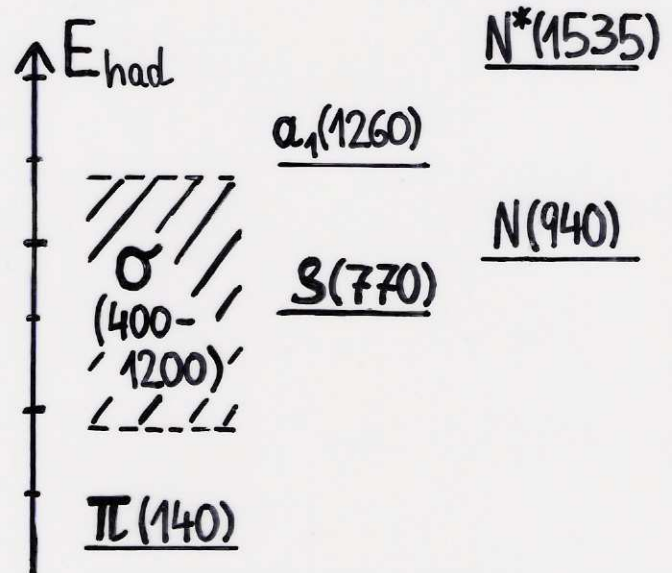 E_had
N*(1535)
a₁(1260)
N(940)
σ
(400-
1200)
ρ(770)
π(140)